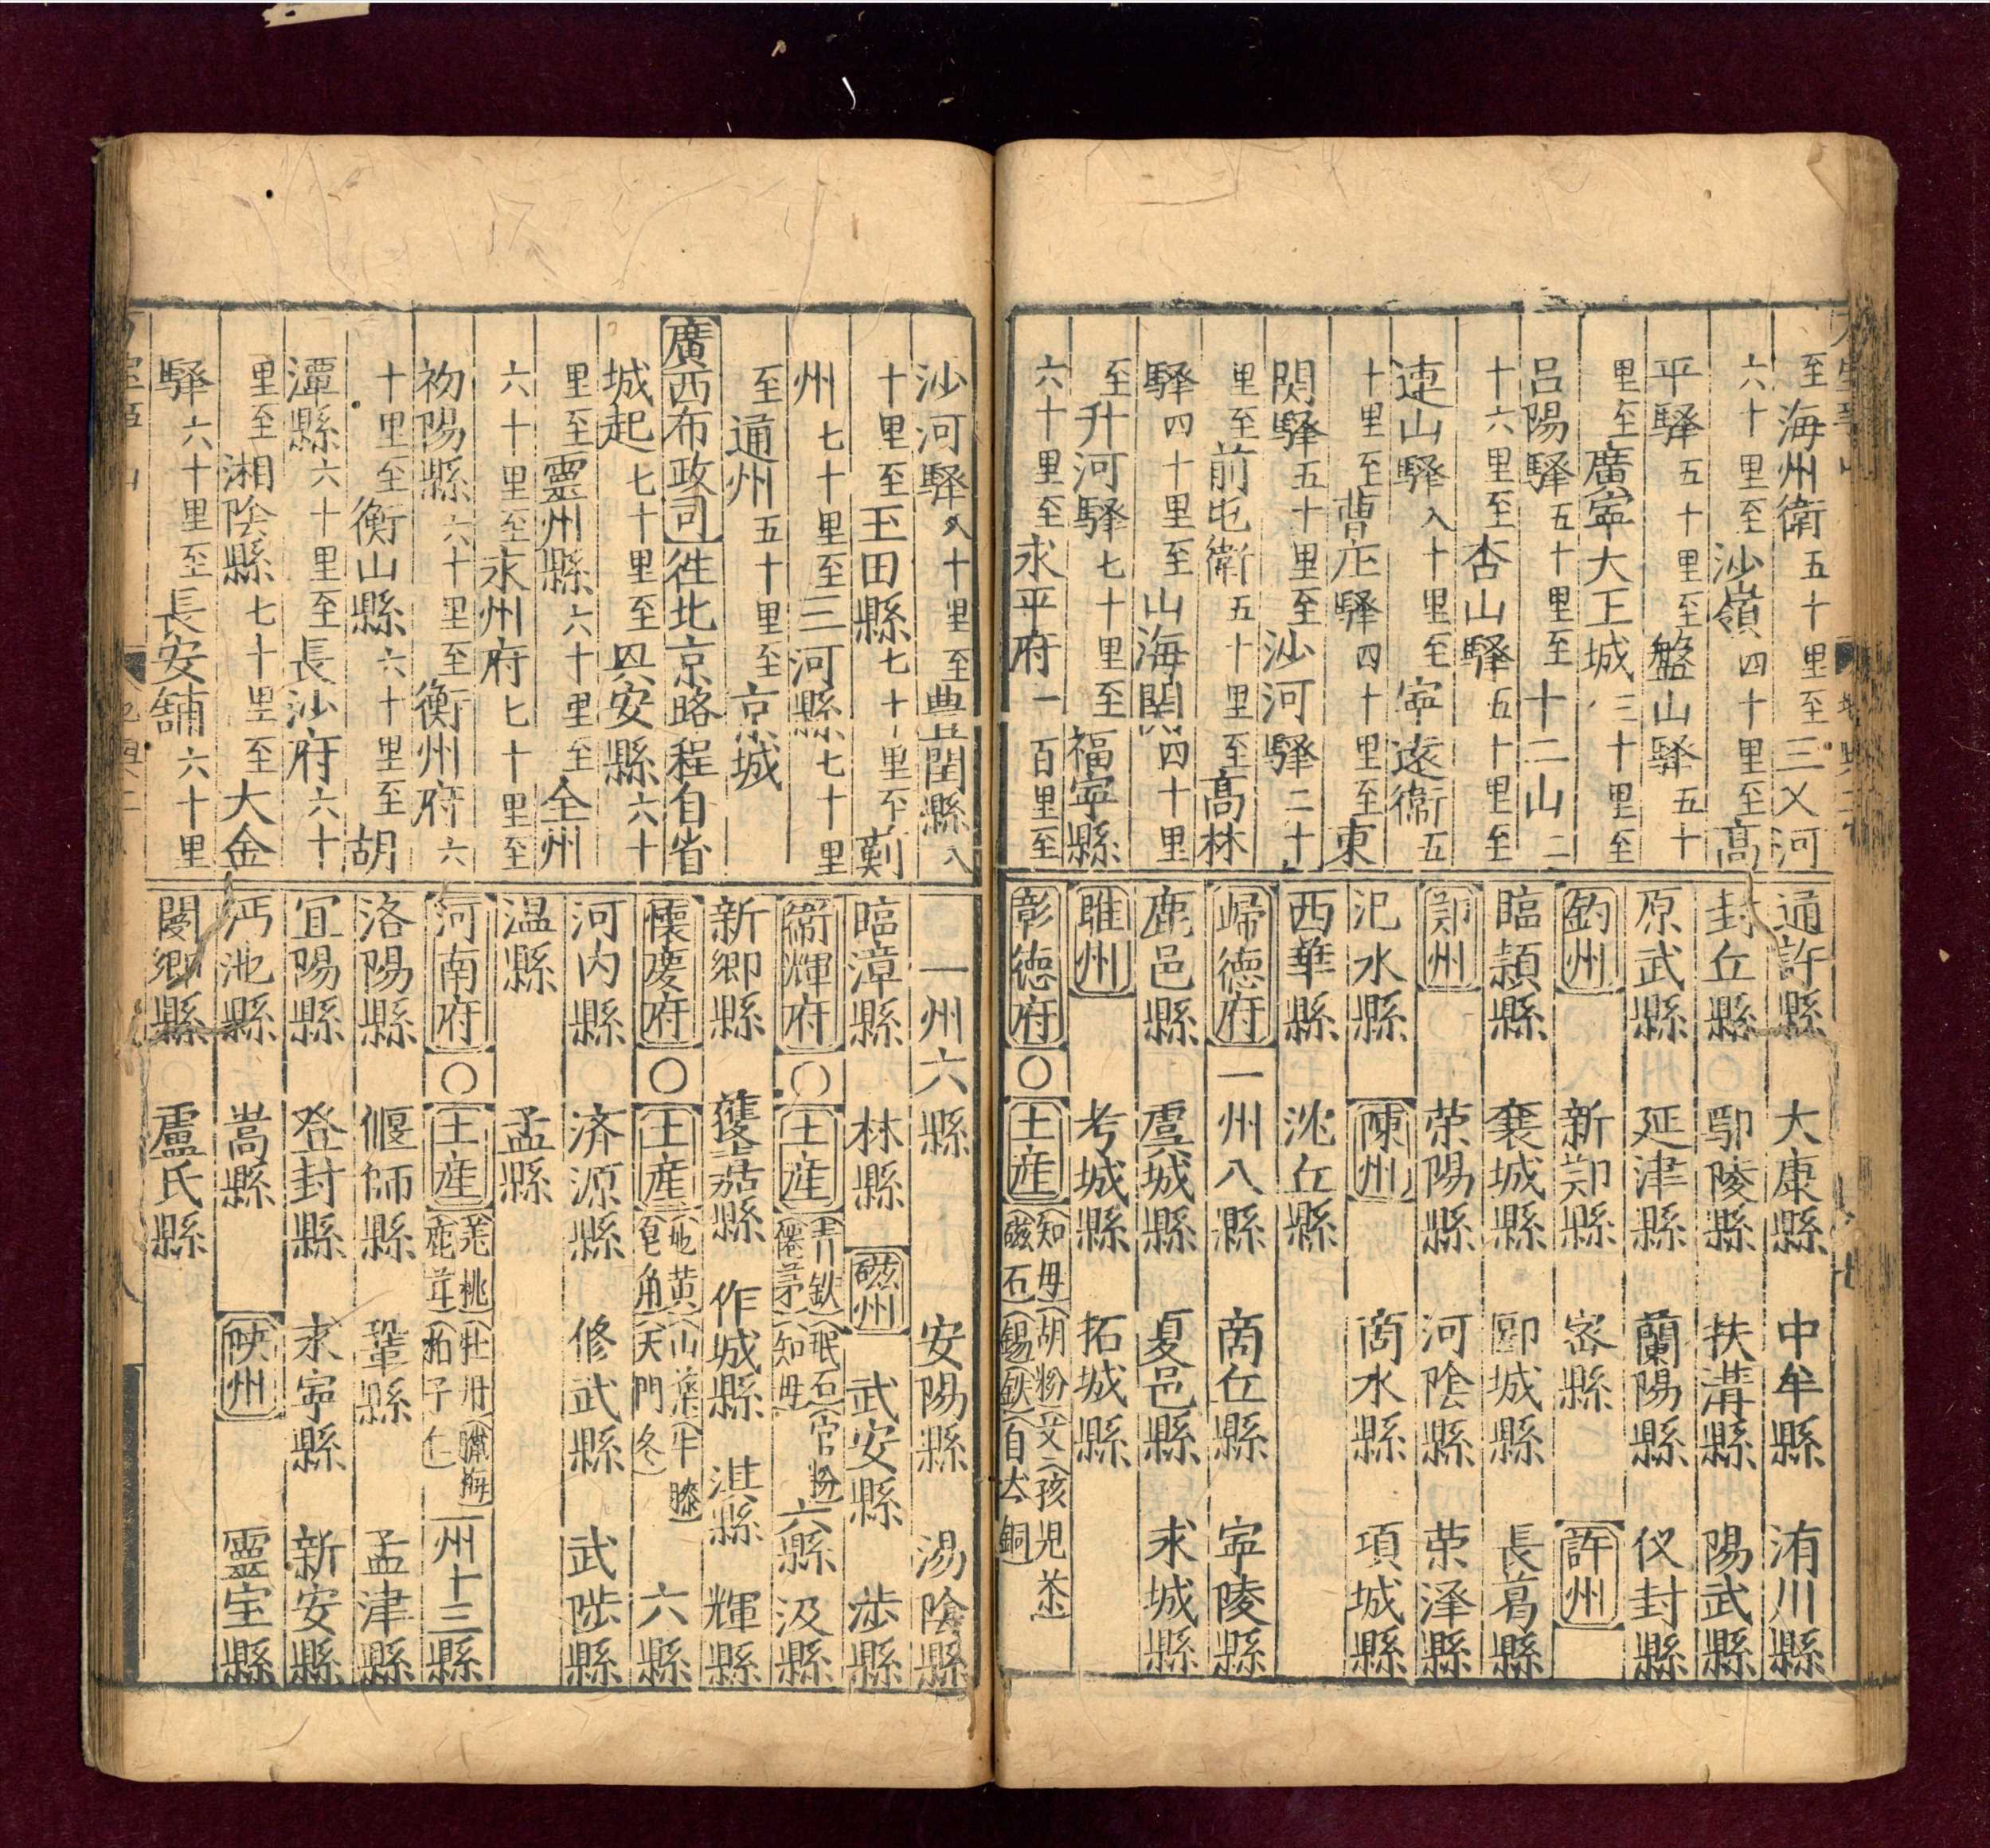 至海州衛五十里至三乂河
六十里至沙嶺四十里至高
平驛五十里至盤山驛五十
里至廣寧大王城三十里至
呂陽驛五十里至十二山二
十六里至杏山驛五十里至
連山驛八十里至寧遠衛五
十里至曹庄驛四十里至東
関驛五十里至沙河驛二十
里至前屯衛五十里至高林
驛四十里至山海関四十里
至升河驛七十里至福寧縣
六十里至永平府一百里至
通許縣 大康縣 中牟縣 洧川縣
封丘縣 鄢陵縣 扶溝縣 陽武縣
原武縣 延津縣 蘭陽縣 仪封縣
鈞州 新郑縣 密縣 許州
臨潁縣 襄城縣 郾城縣 長葛縣
鄭州 荣陽縣 河陰縣 荣泽縣
汜水縣 陳州 商水縣 項城縣
西華縣 沈丘縣
歸德府 一州八縣 商丘縣 寧陵縣
鹿邑縣 虞城縣 夏邑縣 永城縣
睢州 考城縣 拓城縣
彰德府〇土産 知母 胡粉 艾 孩児茶 磁石 錫 鉄 自然銅
沙河驛八十里至豊閏縣八
十里至玉田縣七十里至薊
州七十里至三河縣七十里
至通州五十里至京城
廣西布政司徃北京路程自省
城起七十里至興安縣六十
里至靈州縣六十里至全州
六十里至永州府七十里至
祁陽縣六十里至衡州府六
十里至衡山縣六十里至胡
潭縣六十里至長沙府六十
里至湘陰縣七十里至大金
驛六十里至長安舖六十里
一州六縣 安陽縣 湯陰縣
臨漳縣 林縣 磁州 武安縣 涉縣
衛輝府〇土産 青鉄 珉石 官粉 僊茅 知母 六縣 汲縣
新鄉縣 獲嘉縣 作城縣 淇縣 輝縣
懷慶府〇土産 地黄 山藥 牛膝 皂角 天門冬 六縣
河内縣 済源縣 修武縣 武陟縣
温縣 孟縣
河南府〇土産 羌桃 牡丹 臘梅 鹿茸 柏子仁 一州十三縣
洛陽縣 偃師縣 鞏縣 孟津縣
宜陽縣 登封縣 永寧縣 新安縣
沔池縣 嵩縣 陝州 靈宝縣
閿鄉縣 盧氏縣